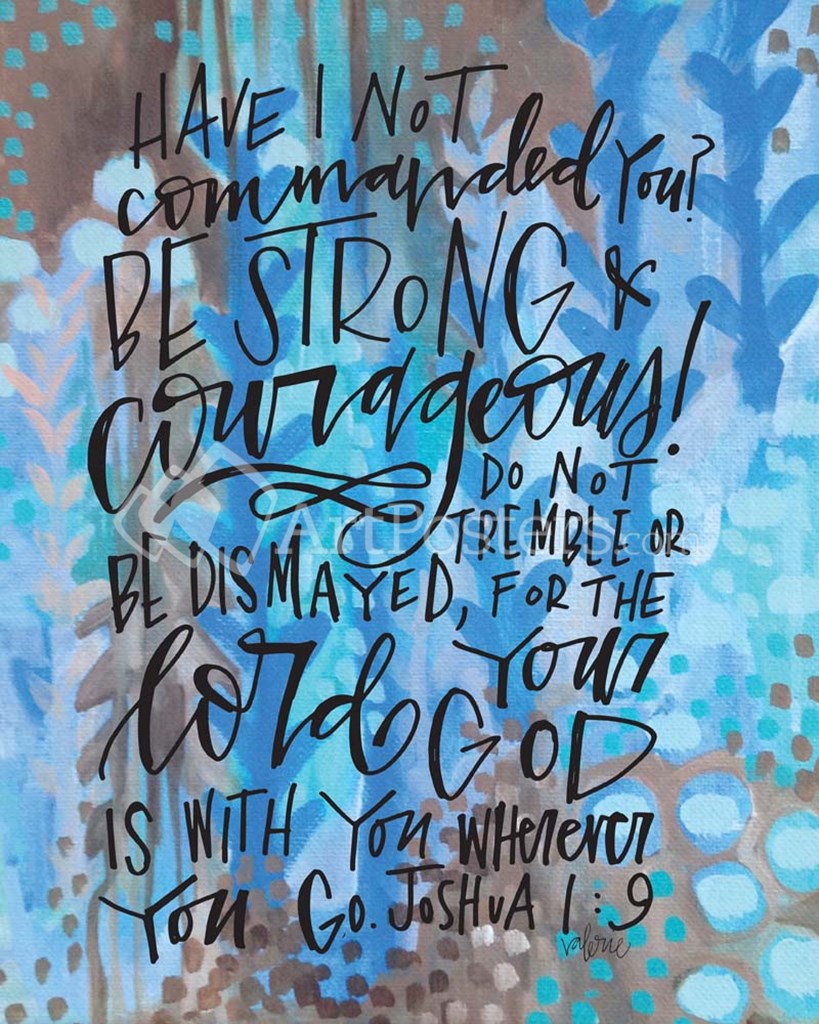 HAVE I NOT
commanded You?
BE STRONG &
courageous!
DO NOT
TREMBLE OR
BE DISMAYED, FOR THE
lord your
GOD
IS WITH YOU WHEREVER
YOU GO. JOSHUA 1:9
valerie
ArtPosters.com